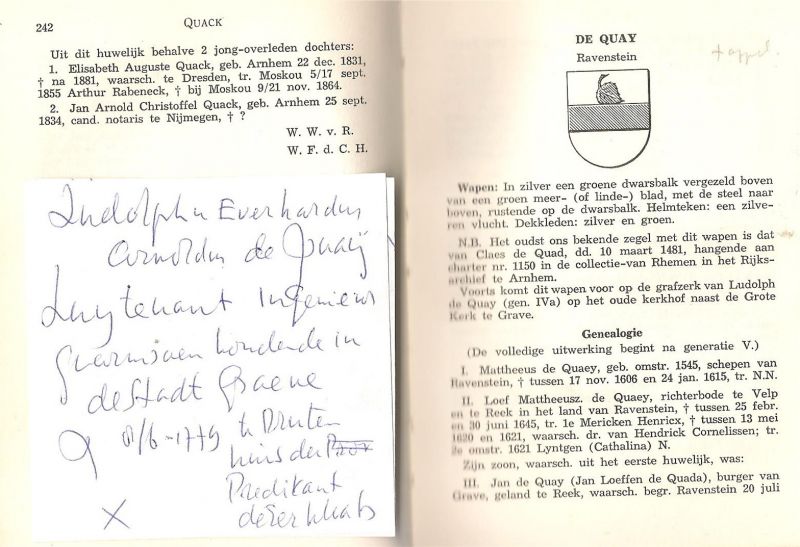 242
QUACK
Uit dit huwelijk behalve 2 jong-overleden dochters:
1. Elisabeth Auguste Quack, geb. Arnhem 22 dec. 1831,
† na 1881, waarsch. te Dresden, tr. Moskou 5/17 sept.
1855 Arthur Rabeneck, † bij Moskou 9/21 nov. 1864.
2. Jan Arnold Christoffel Quack, geb. Arnhem 25 sept.
1834, cand. notaris te Nijmegen, † ?
W. W. v. R.
W. F. d. C. H.
Ludolphu Everhardus
Arnoldus de Quaij
Luytenant Ingenieur
guarnisoen houdende in
de Stadt Graeve
8/6-1779 te Druten
huis der
Predikant
deser plaats
X
DE QUAY
Ravenstein
+ appel.
Wapen: In zilver een groene dwarsbalk vergezeld boven
van een groen meer- (of linde-) blad, met de steel naar
boven, rustende op de dwarsbalk. Helmteken: een zilve-
ren vlucht. Dekkleden: zilver en groen.
N.B. Het oudst ons bekende zegel met dit wapen is dat
van Claes de Quad, dd. 10 maart 1481, hangende aan
charter nr. 1150 in de collectie-van Rhemen in het Rijks-
archief te Arnhem.
Voorts komt dit wapen voor op de grafzerk van Ludolph
de Quay (gen. IVa) op het oude kerkhof naast de Grote
Kerk te Grave.
Genealogie
(De volledige uitwerking begint na generatie V.)
I. Mattheeus de Quaey, geb. omstr. 1545, schepen van
Ravenstein, † tussen 17 nov. 1606 en 24 jan. 1615, tr. N.N.
II. Loef Mattheeusz. de Quaey, richterbode te Velp
en te Reek in het land van Ravenstein, † tussen 25 febr.
en 30 juni 1645, tr. 1e Mericken Henricx, † tussen 13 mei
1620 en 1621, waarsch. dr. van Hendrick Cornelissen; tr.
2e omstr. 1621 Lyntgen (Cathalina) N.
Zijn zoon, waarsch. uit het eerste huwelijk, was:
III. Jan de Quay (Jan Loeffen de Quada), burger van
Grave, geland te Reek, waarsch. begr. Ravenstein 20 juli